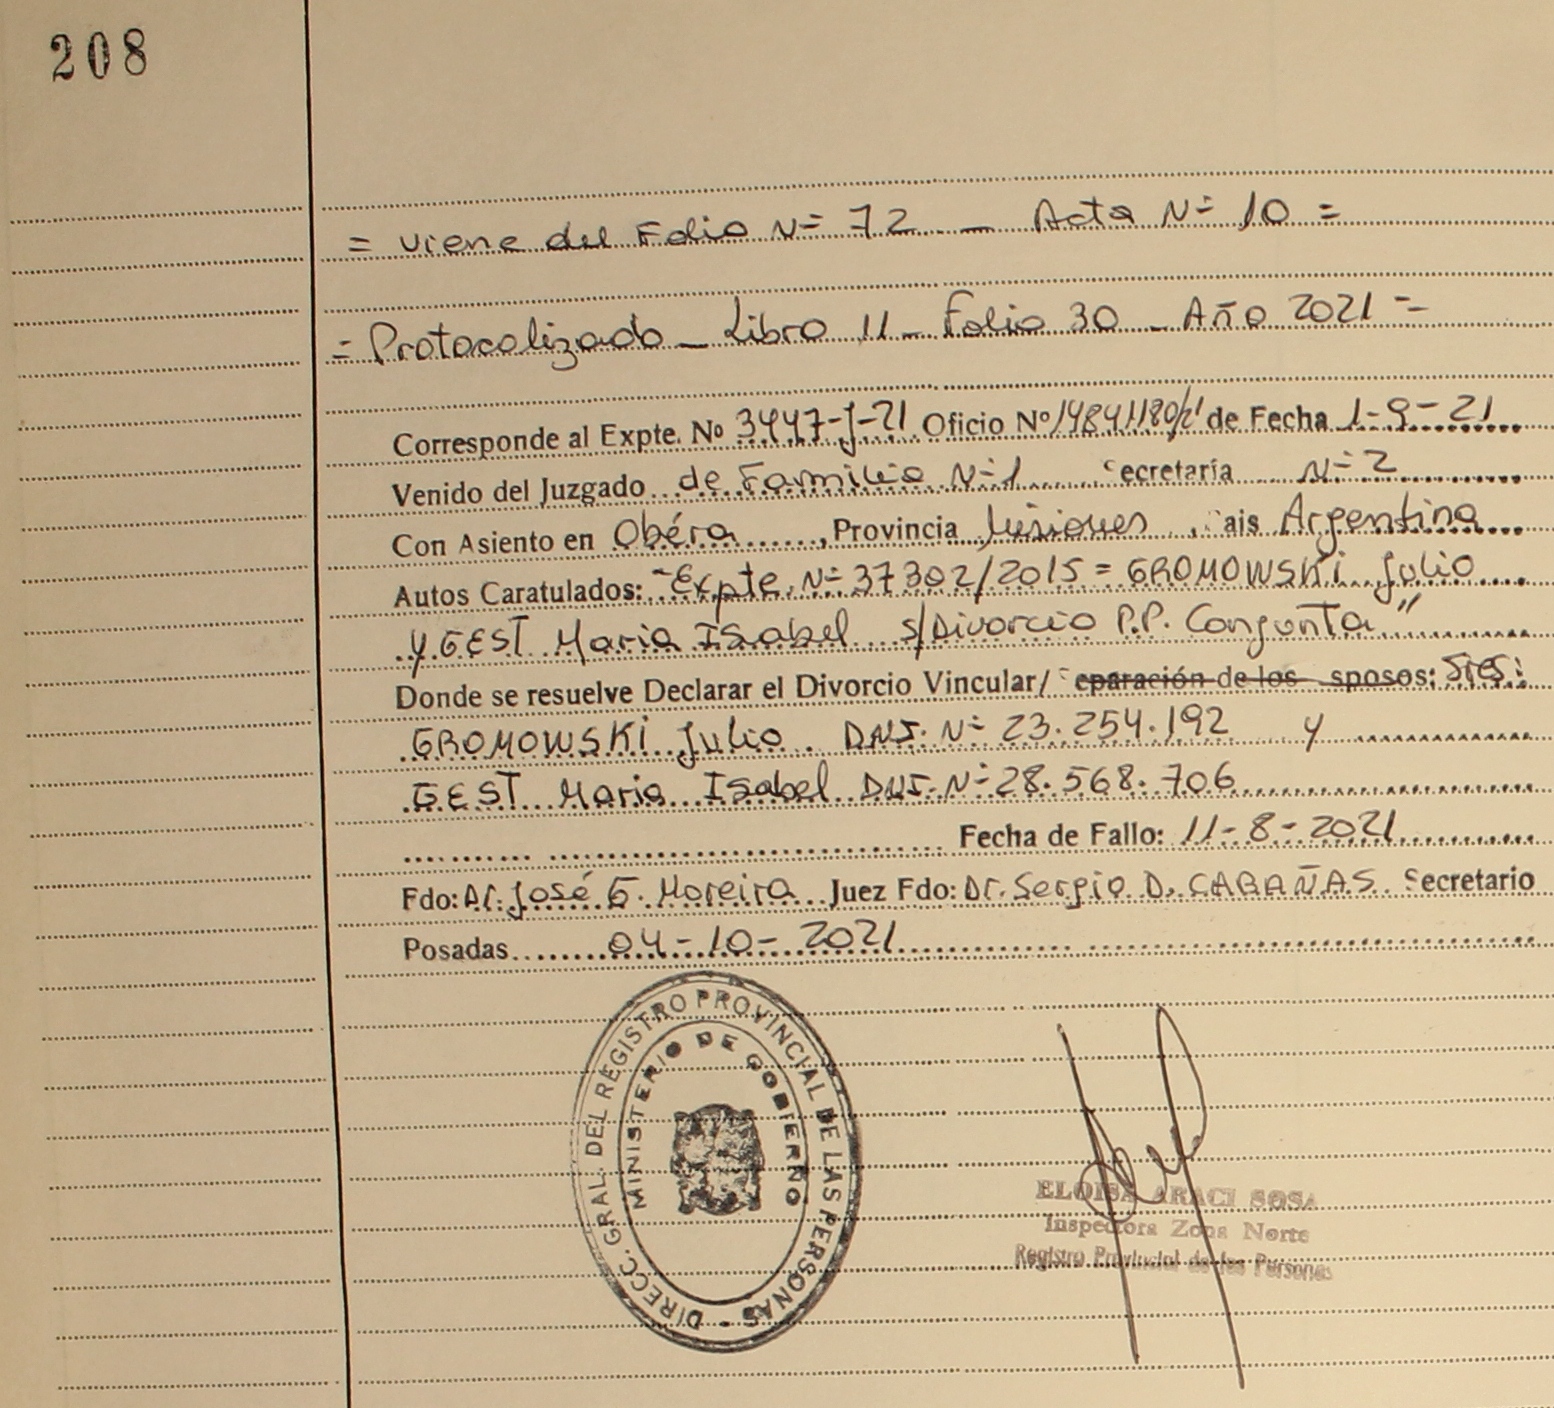 208
= Viene del Folio Nº 72 _ Acta Nº 10 =
= Protocolizado _ Libro 11 _ Folio 30 _ Año 2021 =
Corresponde al Expte. No 3447-J-21 Oficio Nº 14841180/21 de Fecha 1-9-21
Venido del Juzgado de Familia Nº 1 Secretaría Nº 2
Con Asiento en Obéra, Provincia Misiones, Pais Argentina
Autos Caratulados: "Expte. Nº 37302/2015 = GROMOWSKI Julio
y GEST Maria Isabel s/Divorcio P.P. Conjunta"
Donde se resuelve Declarar el Divorcio Vincular/ Separación de los esposos: Sres:
GROMOWSKI Julio. DNI. Nº 23.254.192 y
GEST Maria Isabel DNI. Nº 28.568.706
Fecha de Fallo: 11-8-2021
Fdo: Dr. José G. Moreira Juez Fdo: Dr. Sergio D. CABAÑAS Secretario
Posadas 04-10-2021
DIRECC. GRAL. DEL REGISTRO PROVINCIAL DE LAS PERSONAS -
MINISTERIO DE GOBIERNO
ELOISA ARACI SOSA
Inspectora Zona Norte
Registro Provincial de las Personas